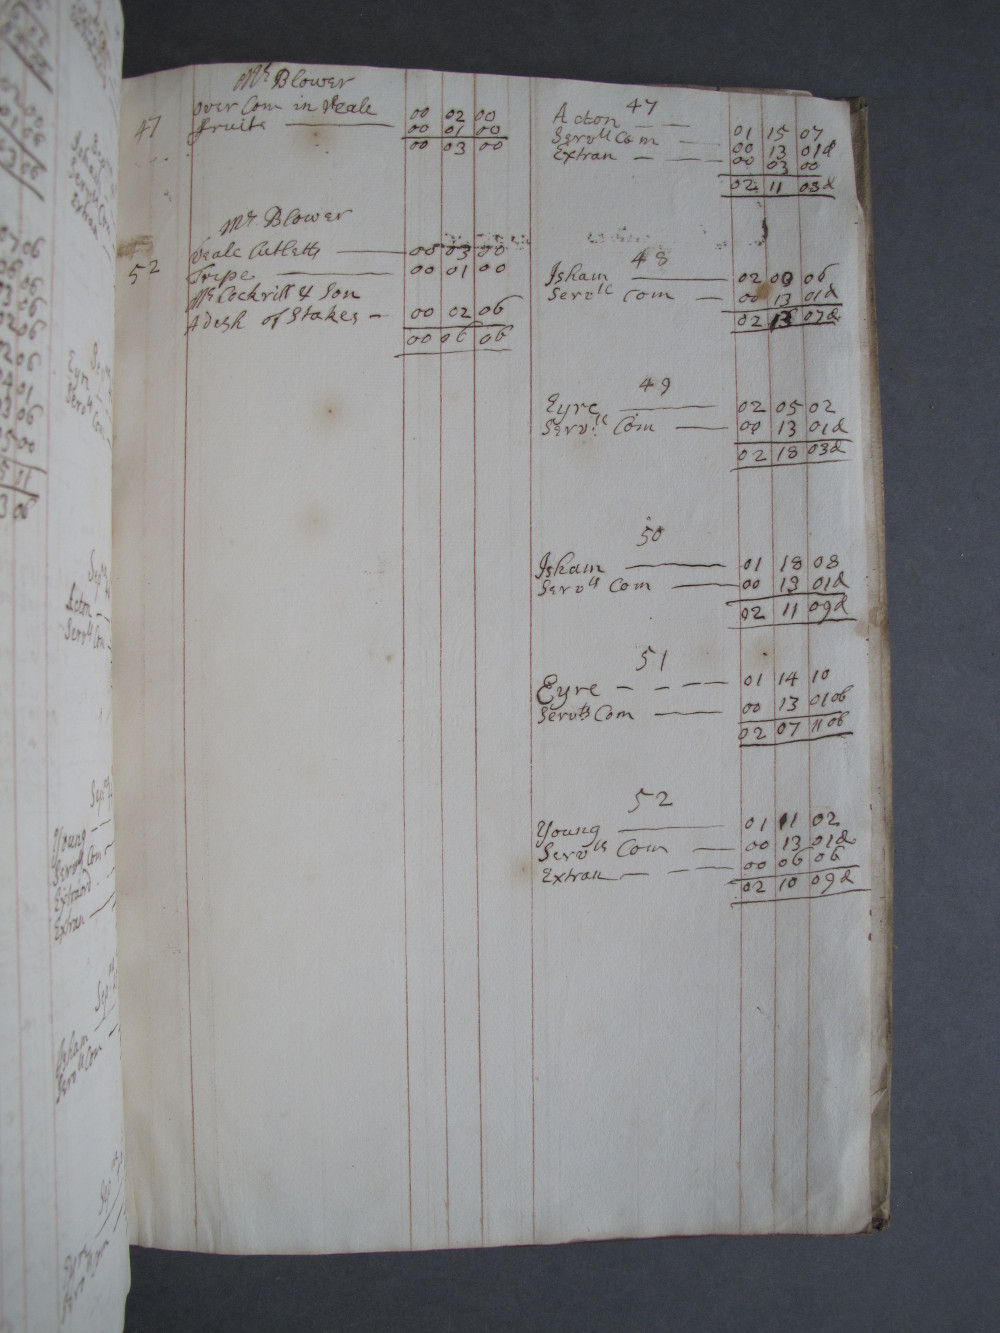 Mr. Blower
47 Over Com in Veale 00 02 00
Fruite 00 01 00
00 03 00
Mr. Blower
Veale Cutletts 00 03 00
52 Tripe 00 01 00
Mr Cockrill & Son
A dish of Stakes 00 02 06
00 06 06
47
Acton 01 15 07
Servts Com 00 13 01d
Extran 00 03 00
02 11 08d
48
Isham 02 00 06
Servts Com 00 13 01d
02 13 07d
49
Eyre 02 05 02
Servts Com 00 13 01d
02 18 03d
50
Isham 01 18 08
Servts Com 00 13 01d
02 11 09d
51
Eyre 01 14 10
Servts Com 00 13 01 ob
02 07 11 ob
52
Young 01 11 02
Servts Com 00 13 01d
Extran 00 06 06
02 10 09d
Eyre
Servts Com
Sepr
Acton
Servts Com
Young
Servts Com
Extraord
Extran
Isham
Servts Com